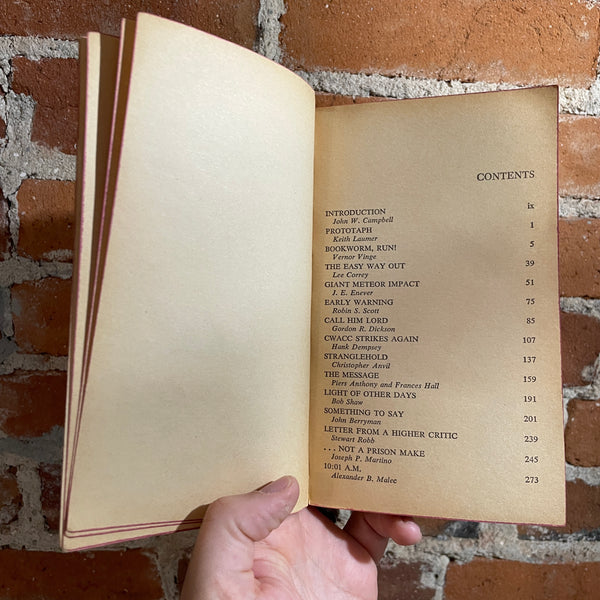 CONTENTS
INTRODUCTION ix
John W. Campbell
PROTOTAPH 1
Keith Laumer
BOOKWORM, RUN! 5
Vernor Vinge
THE EASY WAY OUT 39
Lee Correy
GIANT METEOR IMPACT 51
J. E. Enever
EARLY WARNING 75
Robin S. Scott
CALL HIM LORD 85
Gordon R. Dickson
CWACC STRIKES AGAIN 107
Hank Dempsey
STRANGLEHOLD 137
Christopher Anvil
THE MESSAGE 159
Piers Anthony and Frances Hall
LIGHT OF OTHER DAYS 191
Bob Shaw
SOMETHING TO SAY 201
John Berryman
LETTER FROM A HIGHER CRITIC 239
Stewart Robb
. . . NOT A PRISON MAKE 245
Joseph P. Martino
10:01 A.M. 273
Alexander B. Malec